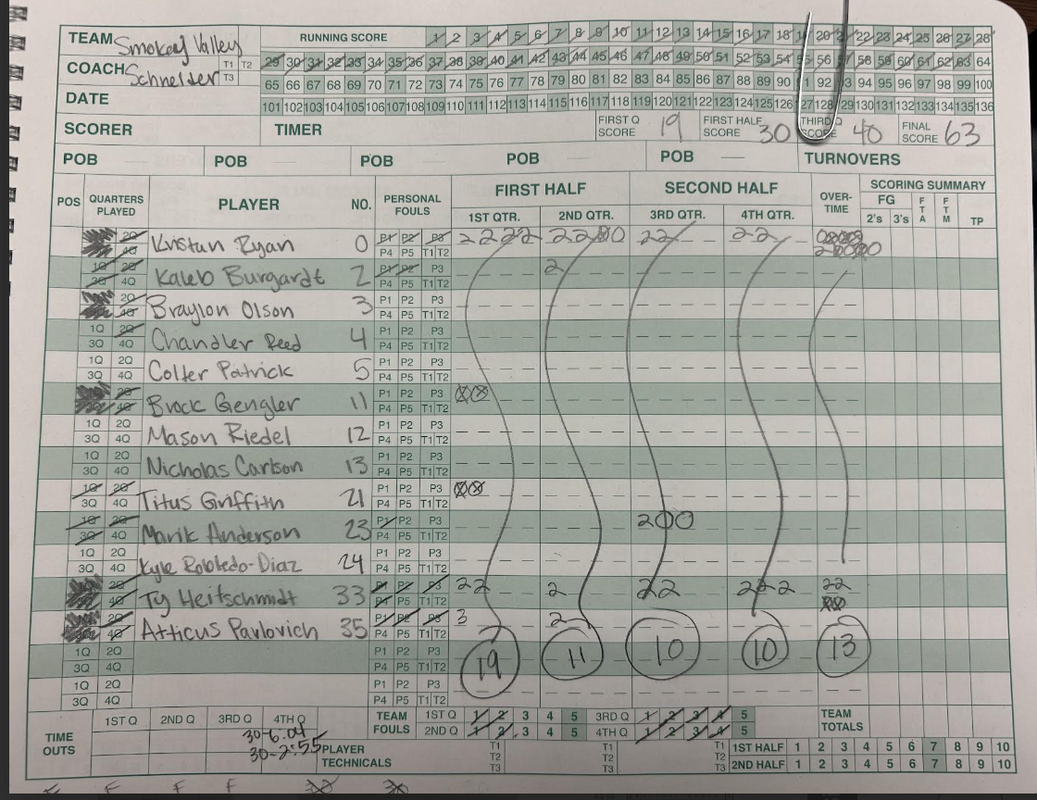 TEAM Smokey Valley RUNNING SCORE 1 2 3 4 5 6 7 8 9 10 11 12 13 14 15 16 17 18 19 20 21 22 23 24 25 26 27 28
COACH Schneider T1 T2 T3 29 30 31 32 33 34 35 36 37 38 39 40 41 42 43 44 45 46 47 48 49 50 51 52 53 54 55 56 57 58 59 60 61 62 63 64
65 66 67 68 69 70 71 72 73 74 75 76 77 78 79 80 81 82 83 84 85 86 87 88 89 90 91 92 93 94 95 96 97 98 99 100
DATE 101 102 103 104 105 106 107 108 109 110 111 112 113 114 115 116 117 118 119 120 121 122 123 124 125 126 127 128 129 130 131 132 133 134 135 136
SCORER TIMER FIRST Q SCORE 19 FIRST HALF SCORE 30 THIRD Q SCORE 40 FINAL SCORE 63
POB POB POB POB POB TURNOVERS
POS QUARTERS PLAYED PLAYER NO. PERSONAL FOULS FIRST HALF SECOND HALF OVER-TIME SCORING SUMMARY
1ST QTR. 2ND QTR. 3RD QTR. 4TH QTR. FG 2's 3's FTA FTM TP
2Q Kristan Ryan 0 P1 P2 P3 2 2 2 2 2 2 0 0 2 2 2 2
4Q P4 P5 T1 T2
1Q 2Q Kaleb Burgardt 2 P1 P2 P3 2
3Q 4Q P4 P5 T1 T2
2Q Braylon Olson 3 P1 P2 P3
4Q P4 P5 T1 T2
1Q 2Q Chandler Reed 4 P1 P2 P3
3Q 4Q P4 P5 T1 T2
1Q 2Q Colter Patrick 5 P1 P2 P3
3Q 4Q P4 P5 T1 T2
2Q Brock Gengler 11 P1 P2 P3
4Q P4 P5 T1 T2
1Q 2Q Mason Riedel 12 P1 P2 P3
3Q 4Q P4 P5 T1 T2
1Q 2Q Nicholas Carlson 13 P1 P2 P3
3Q 4Q P4 P5 T1 T2
1Q 2Q Titus Griffith 21 P1 P2 P3
3Q 4Q P4 P5 T1 T2
1Q 2Q Marik Anderson 23 P1 P2 P3 2 0 0
3Q 4Q P4 P5 T1 T2
1Q 2Q Kyle Robledo-Diaz 24 P1 P2 P3
3Q 4Q P4 P5 T1 T2
2Q Ty Heitschmidt 33 P1 P2 P3 2 2 2 2 2 2 2 2 2 2
4Q P4 P5 T1 T2
2Q Atticus Pavlovich 35 P1 P2 P3 3 2
4Q P4 P5 T1 T2
1Q 2Q P1 P2 P3 19 11 10 10 13
3Q 4Q P4 P5 T1 T2
1Q 2Q P1 P2 P3
3Q 4Q P4 P5 T1 T2
TIME OUTS 1ST Q 2ND Q 3RD Q 4TH Q TEAM FOULS 1ST Q 1 2 3 4 5 3RD Q 1 2 3 4 5 TEAM TOTALS
30-6:04 2ND Q 1 2 3 4 5 4TH Q 1 2 3 4 5
30-2:55 PLAYER TECHNICALS T1 T2 T3 T1 T2 T3 1ST HALF 1 2 3 4 5 6 7 8 9 10
2ND HALF 1 2 3 4 5 6 7 8 9 10